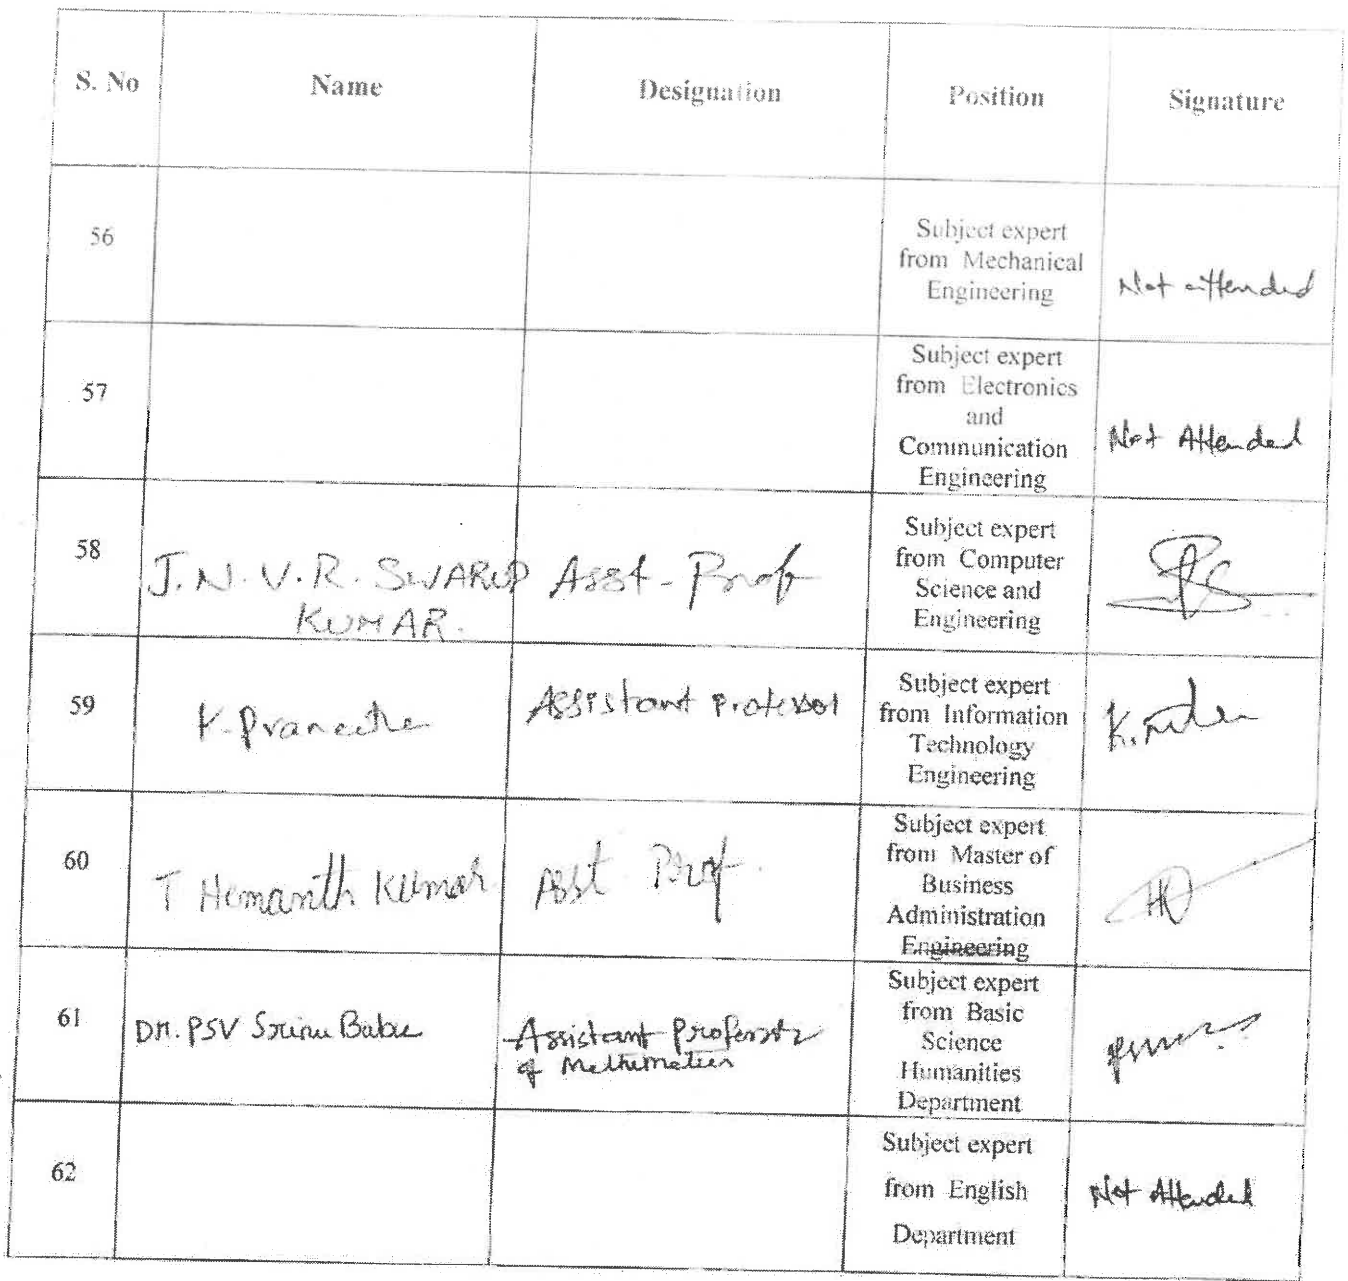 S. No Name Designation Position Signature
56
Subject expert
from Mechanical
Engineering
Not attended
57
Subject expert
from Electronics
and
Communication
Engineering
Not Attended
58
J.N.V.R. SWARUP
KUMAR.
Asst-Prof
Subject expert
from Computer
Science and
Engineering
59
K.Praneetha
Assistant Professor
Subject expert
from Information
Technology
Engineering
60
T Hemanth Kumar
Asst Prof.
Subject expert
from Master of
Business
Administration
Engineering
61
DR. PSV Srinu Babu
Assistant Professor
of Mathematics
Subject expert
from Basic
Science
Humanities
Department
62
Subject expert
from English
Department
Not Attended